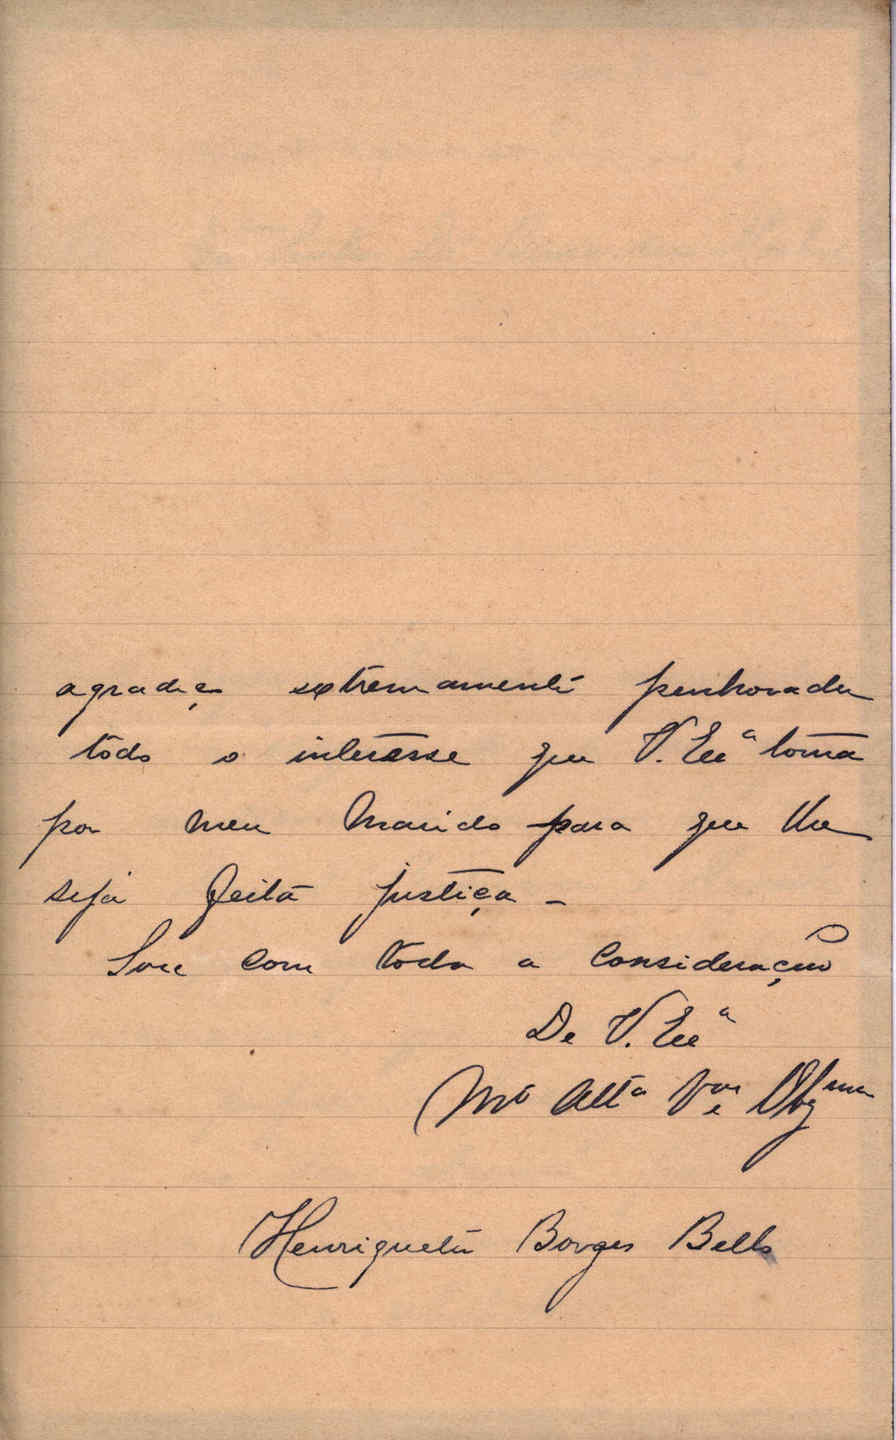 agradeço extremamente penhorada
todo o interesse que V. Excª toma
por meu Marido para que lhe
seja feita justiça -
Sou com toda a consideração
De V. Excª
Mto Attª Vora e Obgma
Henriqueta Borges Bello